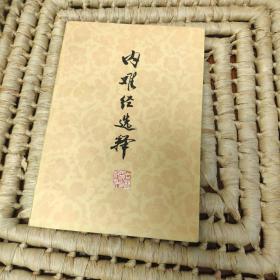 内难经选释